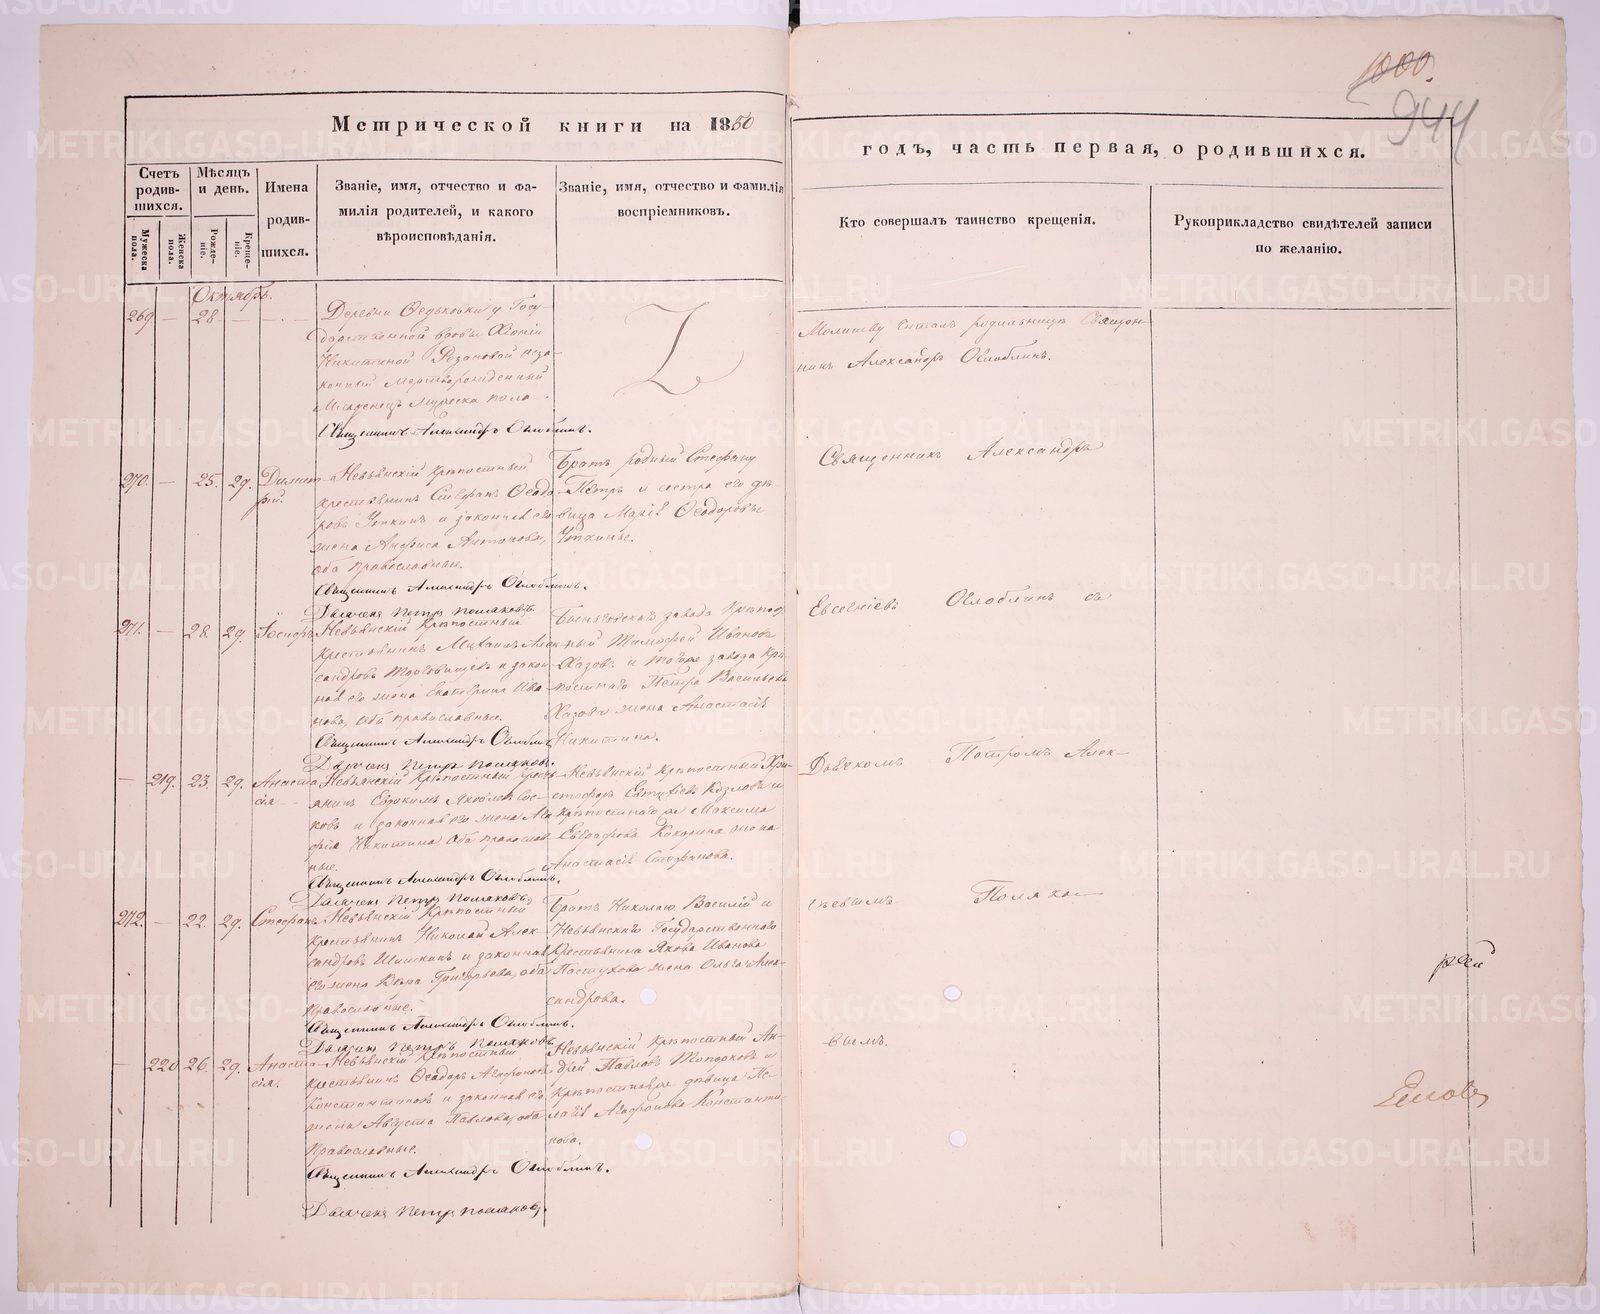 1000.
944
Метрической книги на 1850
годъ, часть первая, о родившихся.
Счетъ родив-
шихся.
Мужеска пола.
Женска пола.
Мѣсяцъ и день.
Рожде-
ніе.
Креще-
ніе.
Имена
родив-
шихся.
Званіе, имя, отчество и фа-
милія родителей, и какого
вѣроисповѣданія.
Званіе, имя, отчество и фамилія
воспріемниковъ.
Кто совершалъ таинство крещенія.
Рукоприкладство свидѣтелей записи
по желанію.
Октябрь.
269. — 28. — —
Деревни Федьковки у Госу-
дарственной вдовы
Никитиной неза-
конный Мертворожденный
Младенецъ мужеска пола.
Священникъ Александръ Оглоблинъ.
Молитву читалъ родильницѣ Священ-
никъ Александръ Оглоблинъ.
270. — 25. 29. Димит-
рій.
Невьянскій крѣпостный
крестьянинъ Стефанъ Ѳеодо-
ровъ Уткинъ и законная его
жена Анфиса Антонова,
оба православные.
Священникъ Александръ Оглоблинъ.
Дьячекъ Петръ Поляковъ.
Братъ родный Стефану
Петръ и сестра его дѣ-
вица Марія Ѳеодоровы
Уткины.
Священникъ Александръ
271. — 28. 29. Іосифъ.
Невьянскій крѣпостный
крестьянинъ Михаилъ Алек-
сандровъ и закон-
ная его жена Екатерина Ива-
нова, оба православные.
Священникъ Александръ Оглоблинъ
Дьячекъ Петръ Поляковъ.
Быньговскаго завода крѣпост-
ный Тимофей Ивановъ
Хазовъ и тогоже завода крѣ-
постнаго Петра Васильева
Хазова жена Анастасія
Никитина.
Евсевіевъ Оглоблинъ съ
— 219. 23. 29. Анаста-
сія.
Невьянскій крѣпостный кресть-
янинъ Евдокимъ Яковлевъ
и законная его жена
Никитина оба православ-
ные.
Священникъ Александръ Оглоблинъ.
Дьячекъ Петръ Поляковъ.
Невьянскій крѣпостный Хри-
стофоръ Козловъ и
крѣпостнаго же Максима
Евграфова Кокорина жена
Анастасія Стефанова.
Дьячкомъ Петромъ Алек-
272. — 22. 29. Стефанъ.
Невьянскій крѣпостный
крестьянинъ Николай Алек-
сандровъ Шишкинъ и законная
его жена Вѣра Григорьева, оба
православные.
Священникъ Александръ Оглоблинъ.
Дьячекъ Петръ Поляковъ
Братъ Николаю Василій и
Невьянскаго Государственнаго
Крестьянина Якова Иванова
Пастухова жена Ольга Алек-
сандрова.
сѣевымъ Поляко-
— 220 26. 29. Анаста-
сія.
Невьянскій крѣпостный
крестьянинъ Ѳеодоръ Агафоновъ
Константиновъ и законная его
жена Августа Павлова, оба
православные.
Священникъ Александръ Оглоблинъ.
Дьячекъ Петръ Поляковъ.
Невьянскій крѣпостный Ан-
дрей Павловъ Топорковъ и
крѣпостная дѣвица Пе-
лагія Агафонова Константи-
нова.
вымъ.